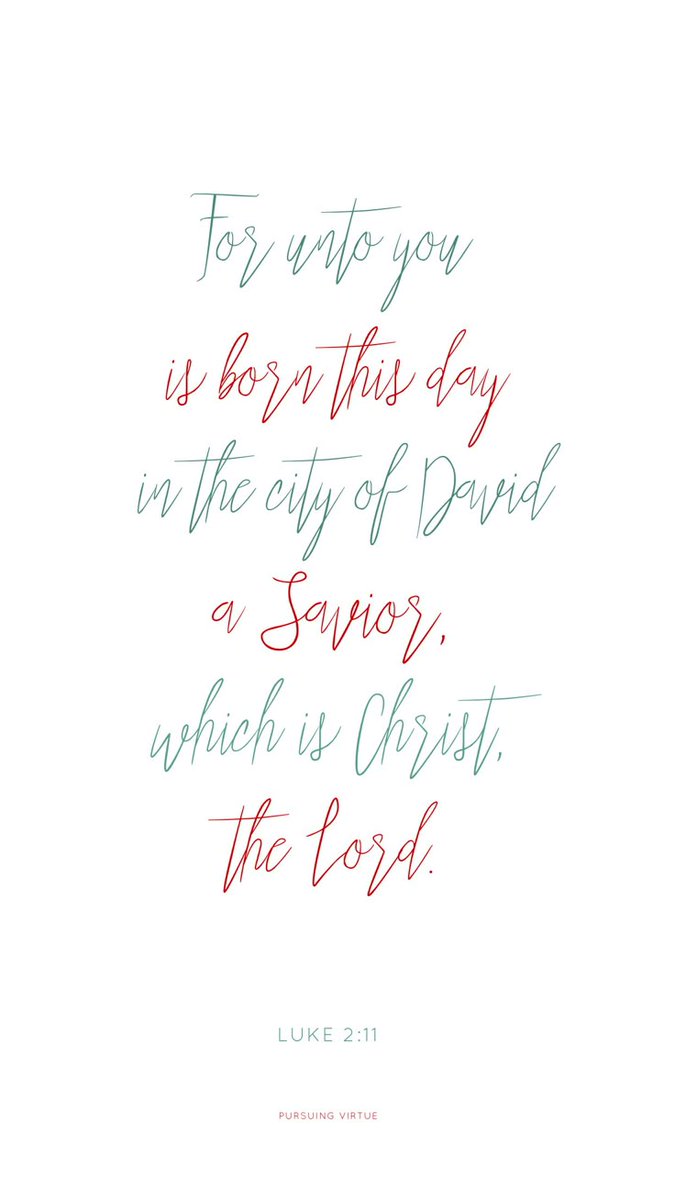 For unto you
is born this day
in the city of David
a Savior,
which is Christ,
the Lord.
LUKE 2:11
PURSUING VIRTUE